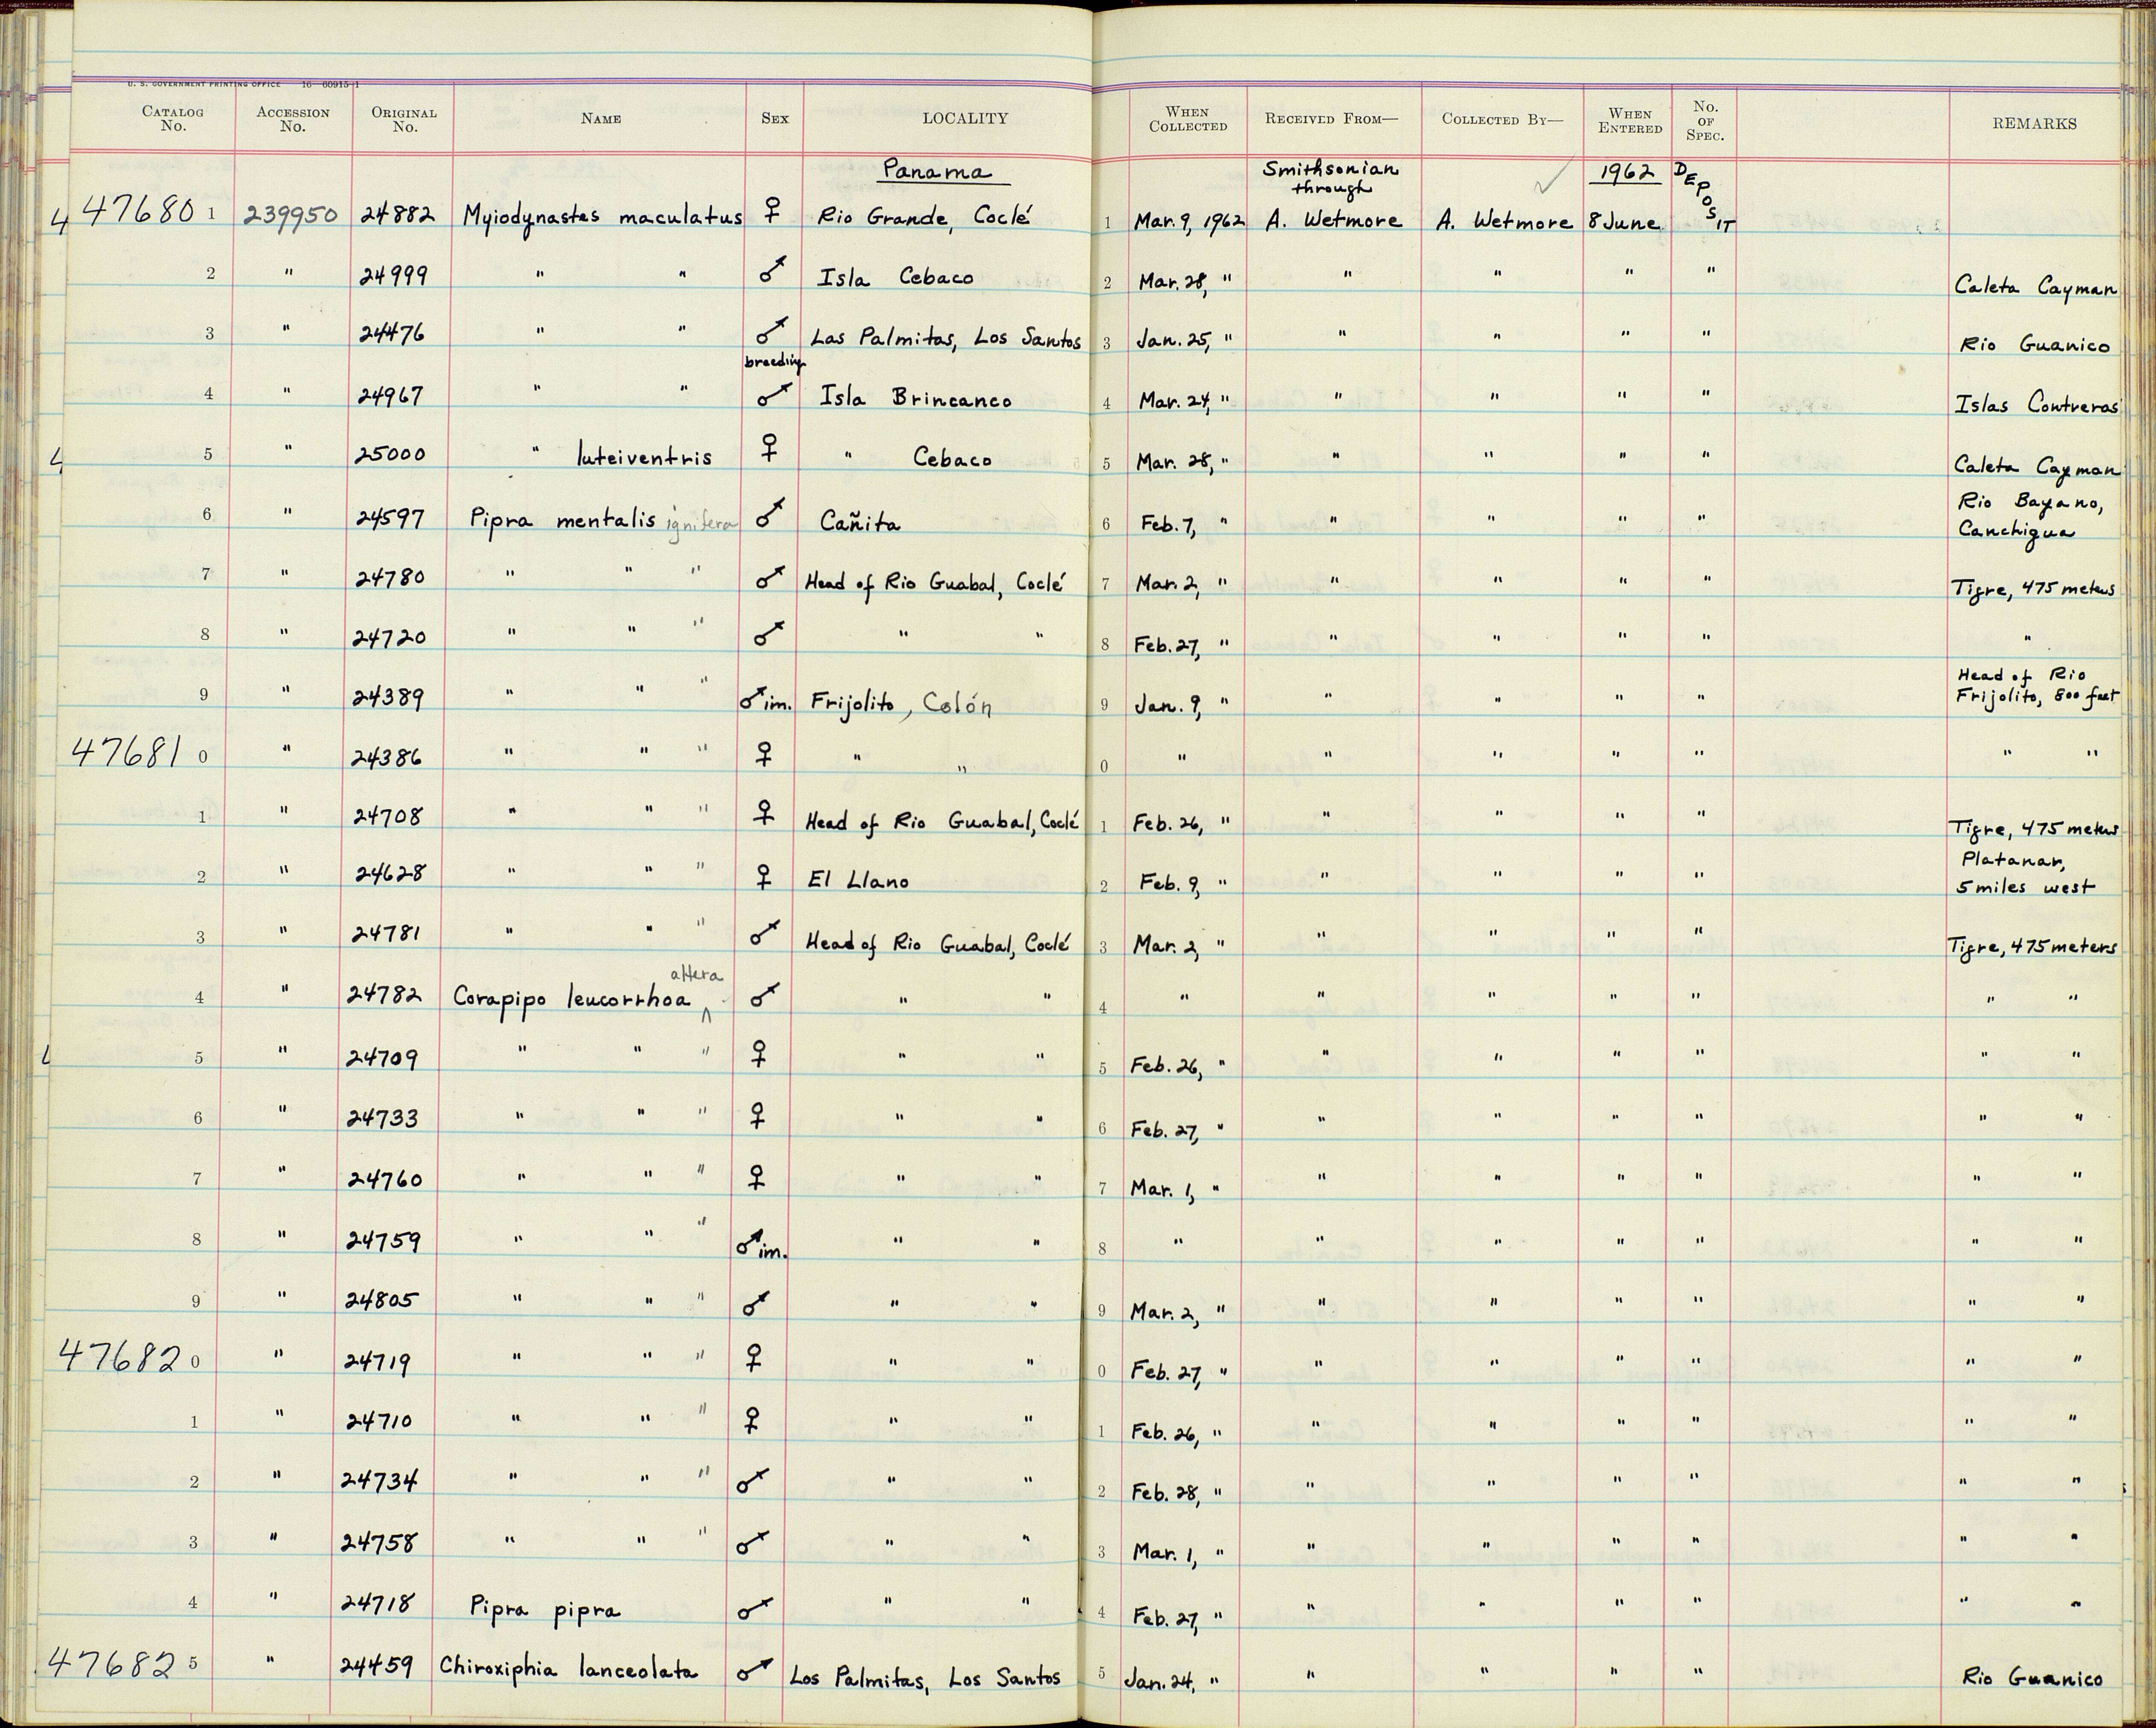 U. S. GOVERNMENT PRINTING OFFICE 16—60915-1
CATALOG No. ACCESSION No. ORIGINAL No. NAME SEX LOCALITY WHEN COLLECTED RECEIVED FROM— COLLECTED BY— WHEN ENTERED No. OF SPEC. REMARKS
Panama Smithsonian through 1962 DEPOSIT
47680 1 239950 24882 Myiodynastes maculatus ♀ Rio Grande, Coclé 1 Mar. 9, 1962 A. Wetmore A. Wetmore 8 June
2 " 24999 " " ♂ Isla Cebaco 2 Mar. 28, " " " " " Caleta Cayman
3 " 24476 " " ♂ breeding Las Palmitas, Los Santos 3 Jan. 25, " " " " " Rio Guanico
4 " 24967 " " ♂ Isla Brincanco 4 Mar. 24, " " " " " Islas Contreras
5 " 25000 " luteiventris ♀ " Cebaco 5 Mar. 28, " " " " " Caleta Cayman
6 " 24597 Pipra mentalis ignifera ♂ Cañita 6 Feb. 7, " " " " " Rio Bayano, Canchigua
7 " 24780 " " " ♂ Head of Rio Guabal, Coclé 7 Mar. 2, " " " " " Tigre, 475 meters
8 " 24720 " " " ♂ " " 8 Feb. 27, " " " " " "
9 " 24389 " " " ♂ im. Frijolito, Colón 9 Jan. 9, " " " " " Head of Rio Frijolito, 800 feet
47681 0 " 24386 " " " ♀ " " 0 " " " " " " "
1 " 24708 " " " ♀ Head of Rio Guabal, Coclé 1 Feb. 26, " " " " " Tigre, 475 meters
2 " 24628 " " " ♀ El Llano 2 Feb. 9, " " " " " Platanar, 5 miles west
3 " 24781 " " " ♂ Head of Rio Guabal, Coclé 3 Mar. 2, " " " " " Tigre, 475 meters
4 " 24782 Corapipo leucorrhoa altera ♂ " " 4 " " " " " " "
5 " 24709 " " " ♀ " " 5 Feb. 26, " " " " " " "
6 " 24733 " " " ♀ " " 6 Feb. 27, " " " " " " "
7 " 24760 " " " ♀ " " 7 Mar. 1, " " " " " " "
8 " 24759 " " " ♂ im. " " 8 " " " " " " "
9 " 24805 " " " ♂ " " 9 Mar. 2, " " " " " " "
47682 0 " 24719 " " " ♀ " " 0 Feb. 27, " " " " " " "
1 " 24710 " " " ♀ " " 1 Feb. 26, " " " " " " "
2 " 24734 " " " ♂ " " 2 Feb. 28, " " " " " " "
3 " 24758 " " " ♂ " " 3 Mar. 1, " " " " " " "
4 " 24718 Pipra pipra ♂ " " 4 Feb. 27, " " " " " " "
47682 5 " 24459 Chiroxiphia lanceolata ♂ Los Palmitas, Los Santos 5 Jan. 24, " " " " " Rio Guanico